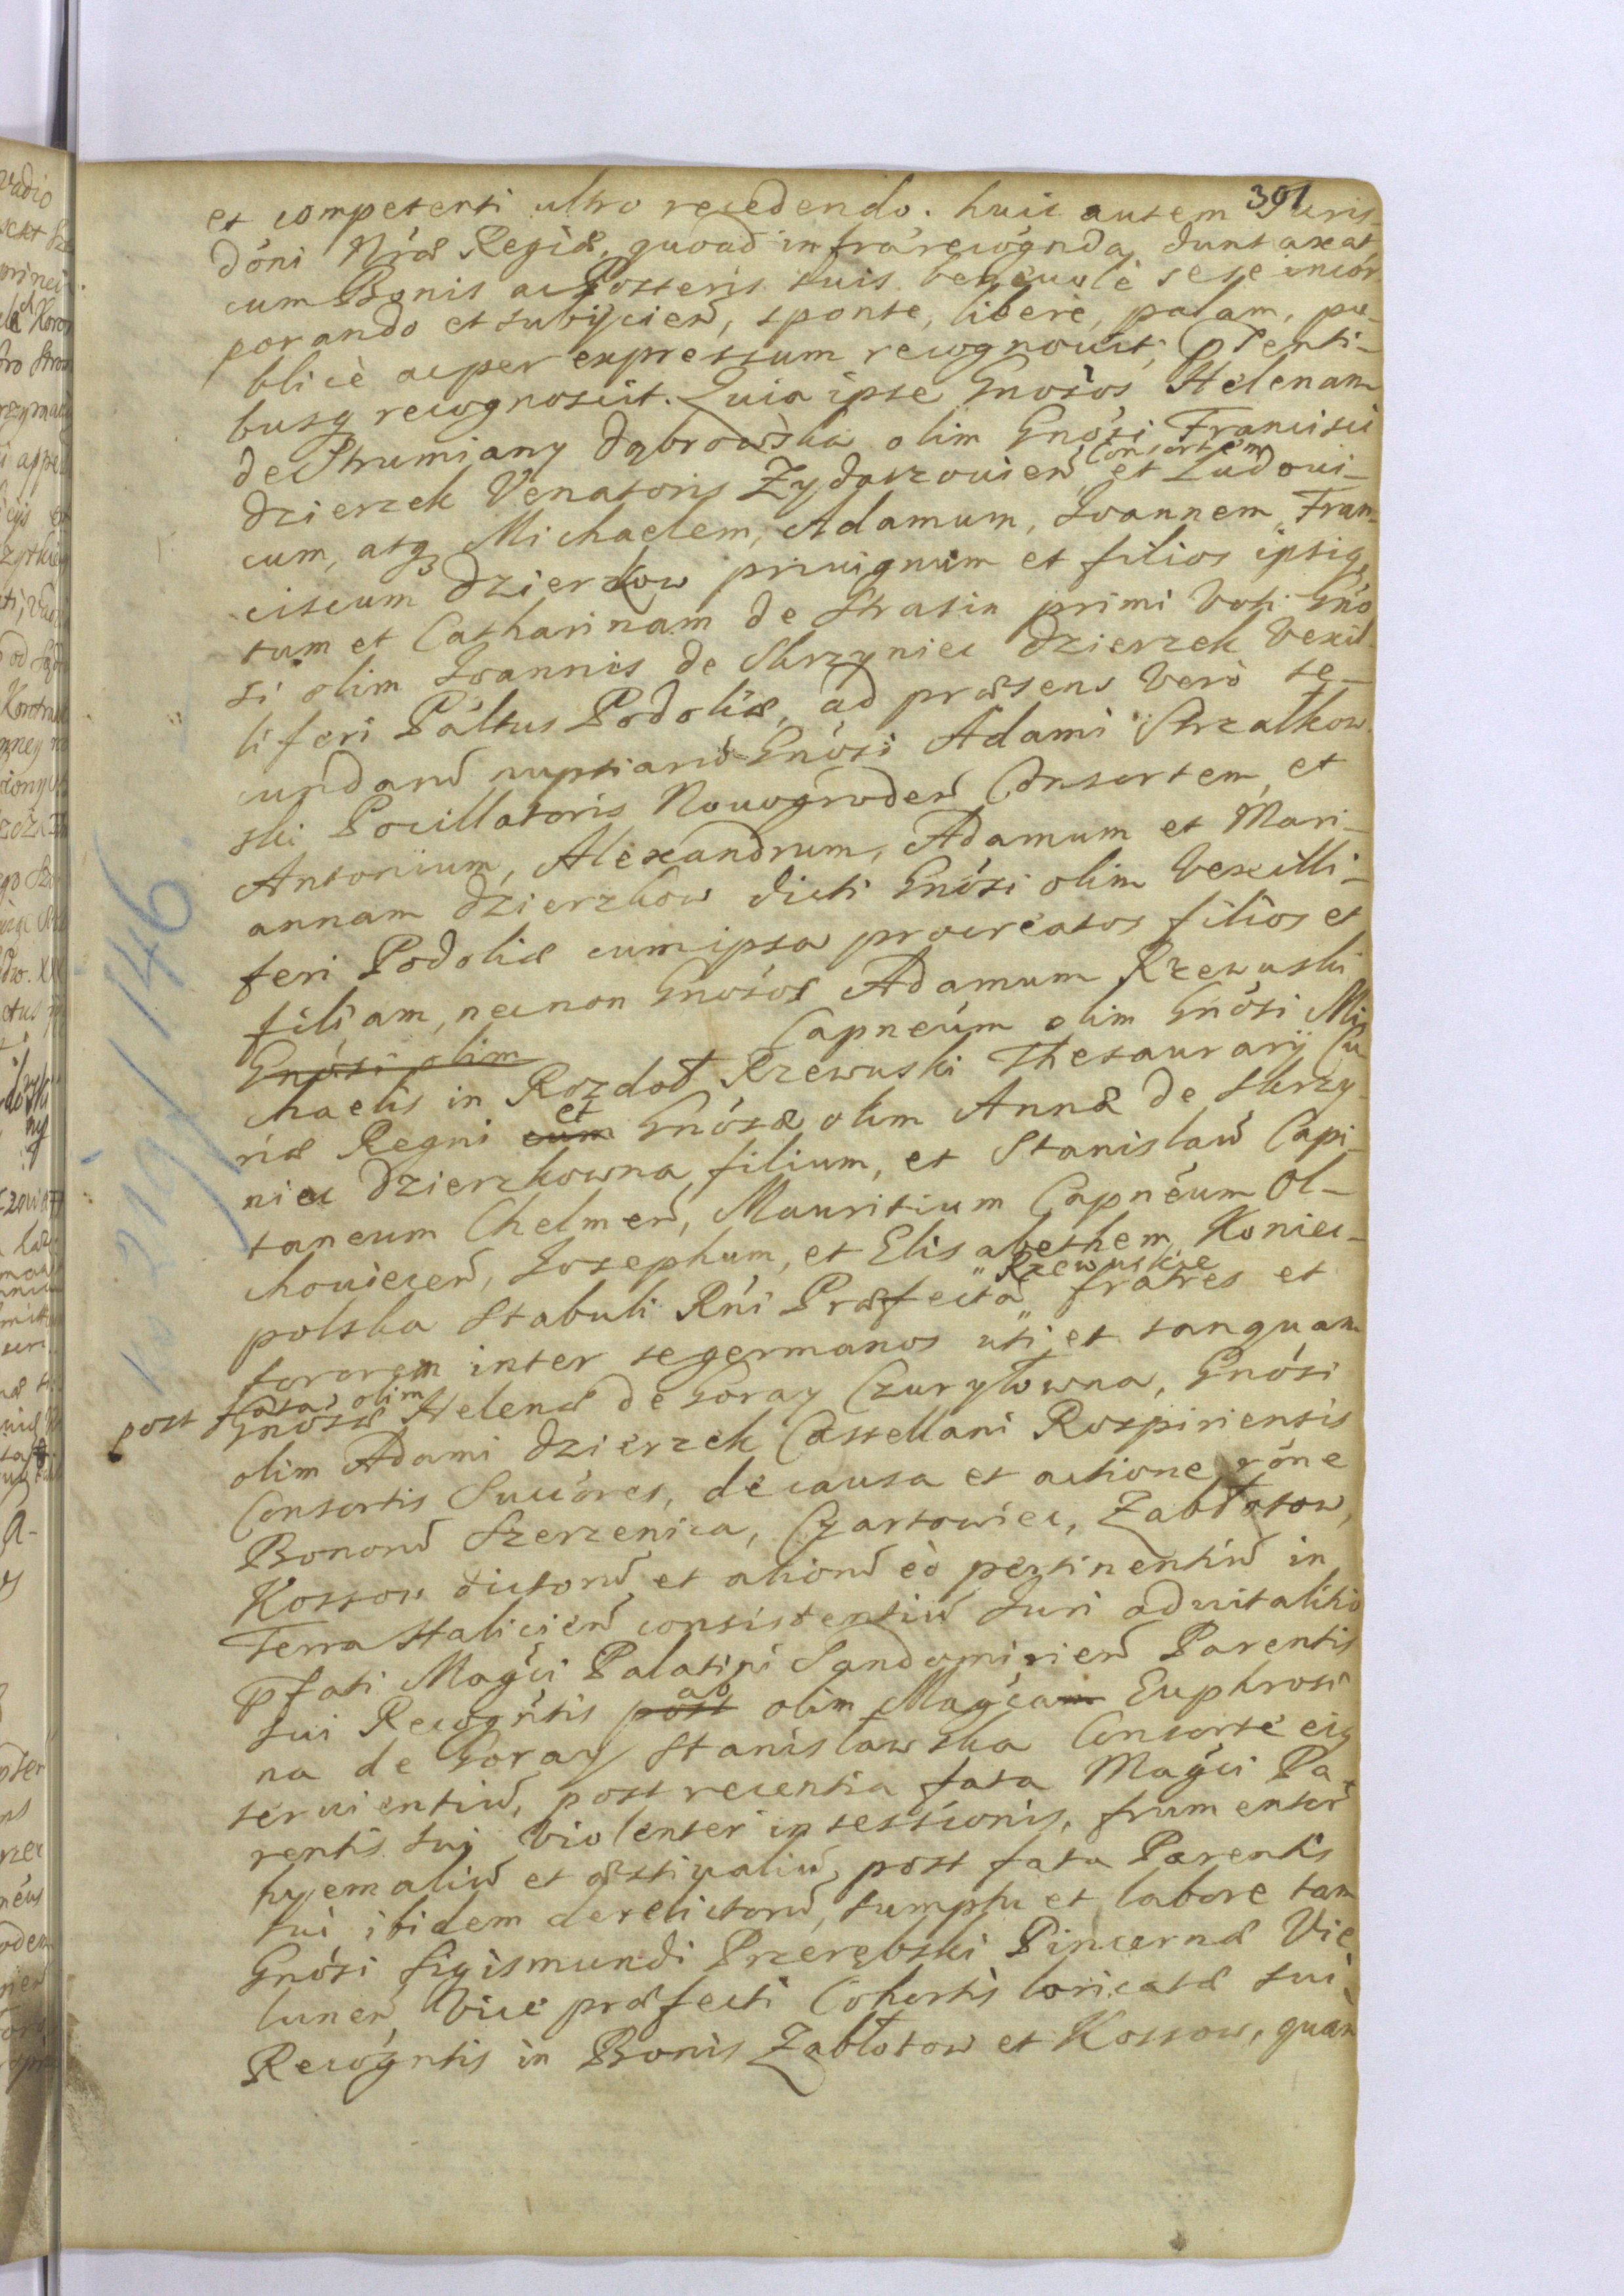 391
et competenti ultro recedendo. huic autem Juris-
dóni Nrӕ Regiӕ, quoad infra recógnda, duntaxat
cum Bonis ac Posteris suis benevolè sese incór
porando et subijcień, sponte, liberè, palam, pu-
blicè ac per expressum recognovit, Pśenti-
busq recognoscit. Quia ipse Gnósos Helenam
de Strumiany Dąbrowska olim Gnósi Francisci
Dzierzek Venatoris Zydaczovień Consortem et Ludovi-
cum, atq3 Michaelem, Adamum, Joannem, Fran-
ciscum Dzierzkow privignum et filios ipsiq,
tum et Catharinam de Stratin primi voti Gnó
si olim Joannis de Skrzyniec Dzierzek Vexil
liferi Páltus Podoliӕ, ad prӕsens verò se-
cundarú nuptiarú Gnósi Adami Strzałkow
ski Pocillatoris Novogrodeń Consortem, et
Antonium, Alexandrum, Adamum et Mari-
annam Dzierzkow dicti Gnósi olim Vexilli-
feri Podoliӕ cum ipsa procreatos filios et
filiam, necnon Gnósos Adamum Rzewuski
Gnósi olim Capneúm olim Gnósi Mi
chaelis in Rozdoł Rzewuski Thesaurarij Cu
riӕ Regni cum et Gnósӕ olim Annӕ de Skrzy
niec Dzierzkowna filium, et Stanisławú Capi-
taneum Chelmeń, Mauritium Capnéum Ol-
chowieceń, Josephum, et Elisabethem Koniec-
polska Stabuli Rńi Prӕfectá "Rzewuskie fratres et
sororem inter se germanos uti, et tanquam
post fata olim Gnósӕ Helenӕ de Goray Czuryłowna, Gnósi
olim Adami Dzierzek Castellani Rospiriensis
Consortis Succóres, de causa et actione róne
Bonorú Szerzenica, Czartowiec, Zabłotow,
Kossow dictorú et aliorú eò pertinentiú in
Terra Halicień consistentiú Juri advitalitio
pfati Magci Palatini Sandomirień Parentis
sui Recogńtis post ab olim Magcam Euphrosi
na de Goray Stanisławska Consorte eiq
servientiú, post recentia fata Magci Pa-
rentis sui violenter intessionis, frumentorú
hyemaliú et ӕstivaliú, post fata Parentis
sui ibidem derelictorú, sumptu et labore tam
Gnósi Sigismundi Przerębski Pincernӕ Vie
luneń, Vice prӕfecti Cohortis loricatӕ sui
Recógntis in Bonis Zabłotow et Kossow, quam